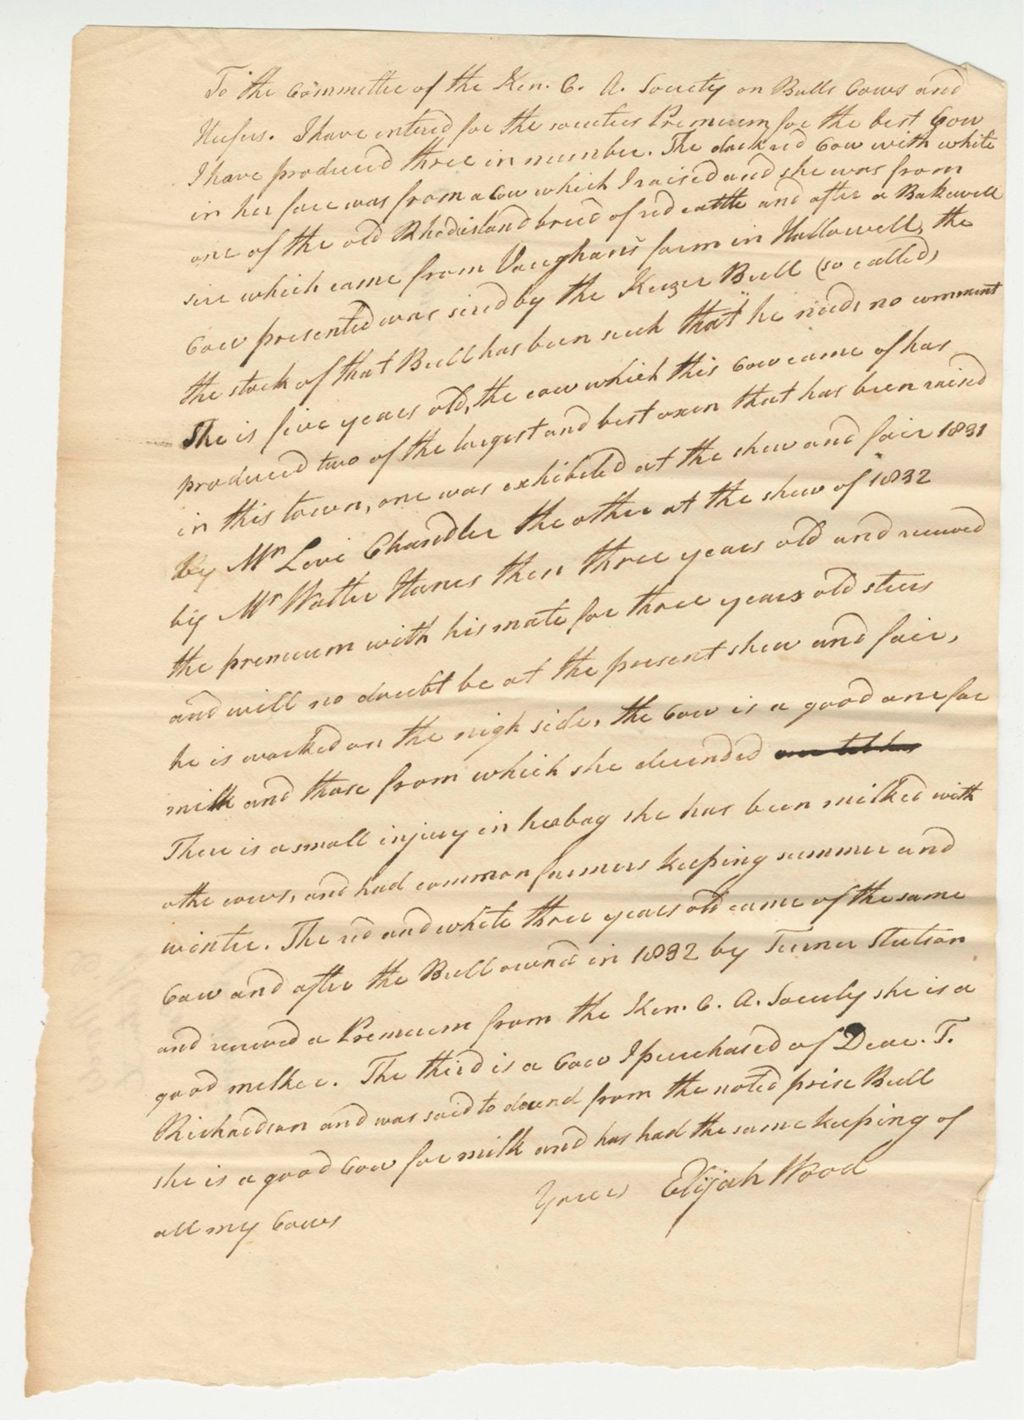 To the Committee of the Ken. C. A. Society on Bulls Cows and
Heifers. I have entered for the societies Premeum for the best Cow
I have produced three in number. The dark red Cow with white
in her face was from a Cow which I raised and she was from
one of the old Rhodisland breed of red cattle and after a Bakewell
sire which came from Vaughan's farm in Hallowell, the
Cow presented was sired by the Keezer Bull (so called)
the stock of that Bull has been such that he needs no comment
She is five years old, the cow which this Cow came of has
produced two of the largest and best oxen that has been raised
in this town, one was exhibited at the shew and fair 1831
by Mr Levi Chandler the other at the shew of 1832
by Mr Walter Hanes then three years old and received
the premeum with his mate for three years old steers
and will no doubt be at the present shew and fair,
he is worked on the nigh side, the Cow is a good one for
milk and those from which she decended
There is a small injury in her bag she has been milked with
othe cows, and had common farmers keeping summer and
winter. The red and white three years old came of the same
Cow and after the Bull owned in 1832 by Turner Stutson
and received a Premeum from the Ken. C. A. Society she is a
good melker. The third is a Cow I purchased of Deac. T.
Richardson and was said to decend from the noted prise Bull
she is a good Cow for milk and has had the same keeping of
all my Cows
Yours Elijah Wood